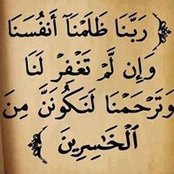 ﴿ رَبَّنَا ظَلَمْنَآ أَنفُسَنَا
وَإِن لَّمْ تَغْفِرْ لَنَا
وَتَرْحَمْنَا لَنَكُونَنَّ مِنَ
ٱلْخَاسِرِينَ ﴾